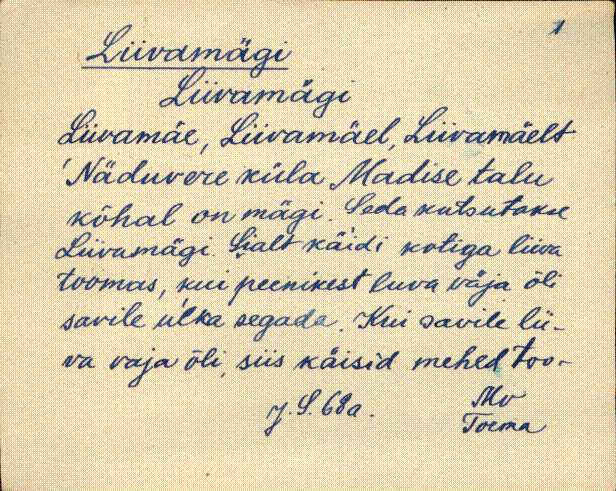 1
Liivamägi
Liivamägi
Liivamäe, Liivamäel, Liivamäelt
'Näduvere küla Madise talu
kõhal on mägi. Seda kutsutakse
Liivamägi. Sialt käidi kotiga liiva
toomas, kui peenikest liiva vaja õli
savile ulka segada. Kui savile lii-
va vaja õli, siis käisid mehed too-
J. S. 68a. Mv
Toema